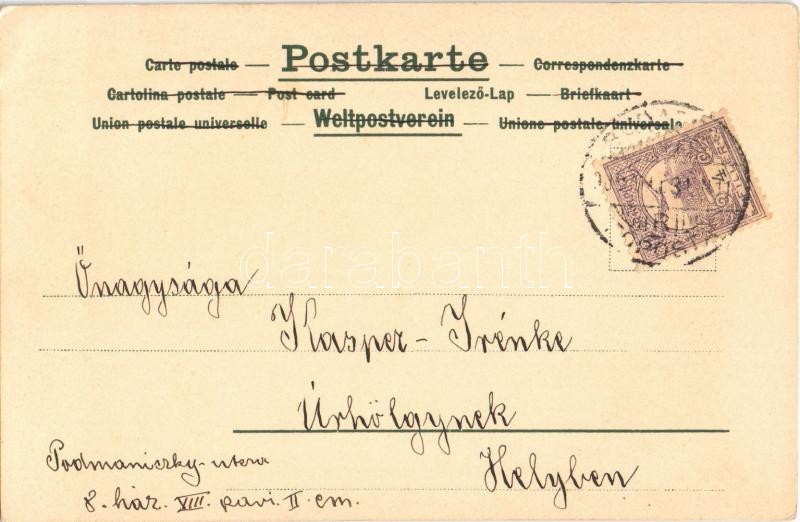 Postkarte
Carte postale — Correspondenzkarte
Cartolina postale — Post card Levelező-Lap — Briefkaart
Union postale universelle — Weltpostverein — Unione postale universale
darabanth
Őnagysága
Kasper-Irénke
Úrhölgynek
Helyben
Podmaniczky-utcza
8. ház. VIII. pavi. II. em.